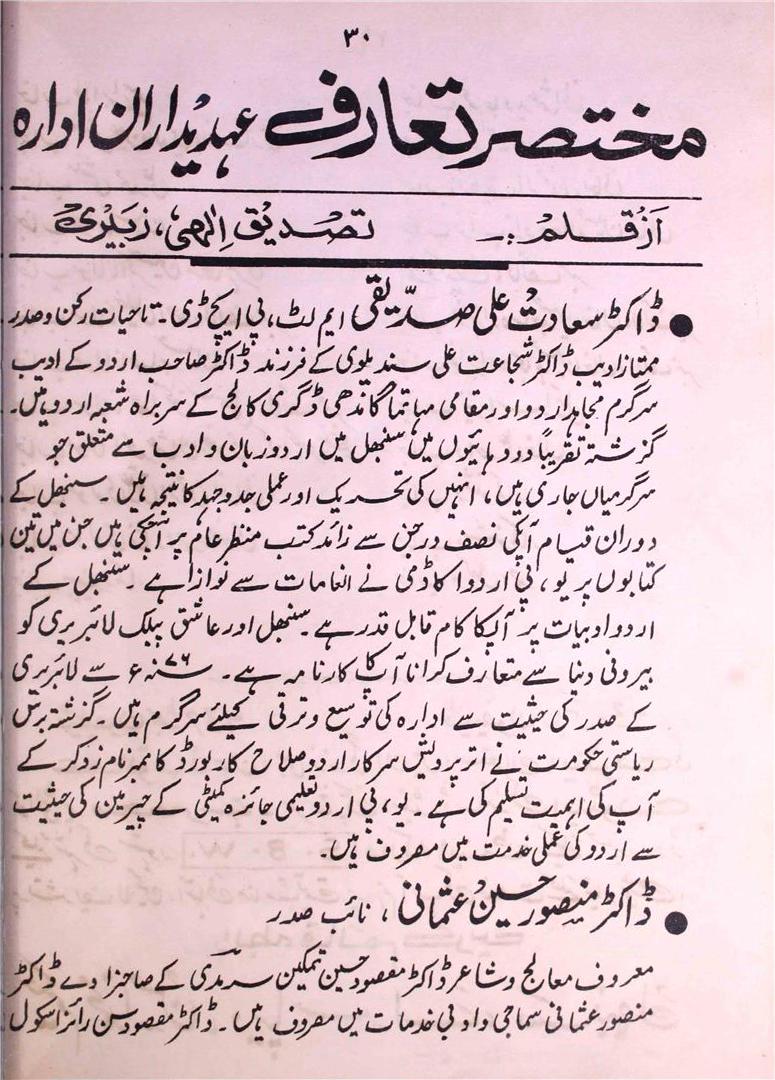 ۳۰
مختصر تعارف عہدیداران ادارہ
از قلم :۔ تصدیق الٰہی، زبیری
● ڈاکٹر سعادت علی صدّیقی ایم لٹ، پی ایچ ڈی۔ تاحیات رکن و صدر
ممتاز ادیب ڈاکٹر شجاعت علی سندیلوی کے فرزند ڈاکٹر صاحب اردو کے ادیب
سرگرم مجاہد اردو اور مقامی مہاتما گاندھی ڈگری کالج کے سربراہ شعبہ اردو ہیں۔
گزشتہ تقریباً دو دہائیوں میں سنبھل میں اردو زبان و ادب سے متعلق جو
سرگرمیاں جاری ہیں، انہیں کی تحریک اور عملی جدوجہد کا نتیجہ ہیں۔ سنبھل کے
دوران قیام آپکی نصف درجن سے زائد کتب منظر عام پر آچکی ہیں جن میں تین
کتابوں پر یو، پی اردو اکاڈمی نے انعامات سے نوازا ہے۔ سنبھل کے
اردو ادبیات پر آپکا کام قابل قدر ہے۔ سنبھل اور عاشق پبلک لائبریری کو
بیرونی دنیا سے متعارف کرانا آپ کا کارنامہ ہے۔ ۷۶ سنہ ء سے لائبریری
کے صدر کی حیثیت سے ادارہ کی توسیع و ترقی کیلئے سرگرم ہیں۔ گزشتہ برس
ریاستی حکومت نے اتر پردیش سرکار اردو صلاح کار بورڈ کا ممبر نامزد کر کے
آپ کی اہمیت تسلیم کی ہے۔ یو، پی اردو تعلیمی جائزہ کمیٹی کے چیرمین کی حیثیت
سے اردو کی عملی خدمت میں مصروف ہیں۔
● ڈاکٹر منصور حسین عثمانی، نائب صدر
معروف معالج و شاعر ڈاکٹر مقصود حسین تمکین سرمدی کے صاحبزادے ڈاکٹر
منصور عثمانی سماجی و ادبی خدمات میں مصروف ہیں۔ ڈاکٹر مقصود سن رائز اسکول